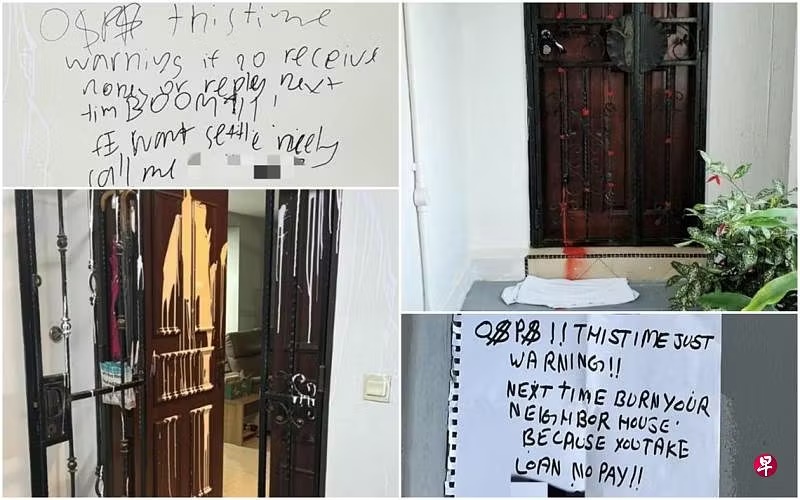 O$P$ this time
warning if no receive
money or reply next
tim BOOM!!!
If want settle nicely
call me
O$P$ !! THIS TIME JUST
WARNING!!
NEXT TIME BURN YOUR
NEIGHBOR HOUSE.
BECAUSE YOU TAKE
LOAN NO PAY!!
早